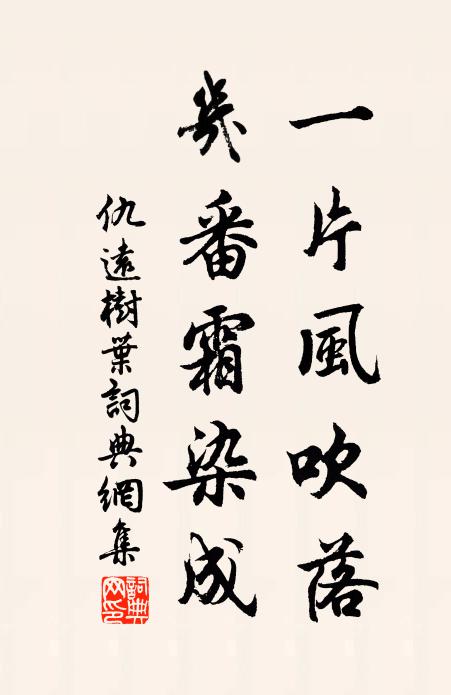 一片風吹落
幾番霜染成
仇遠樹葉詞典網集
詞典网印